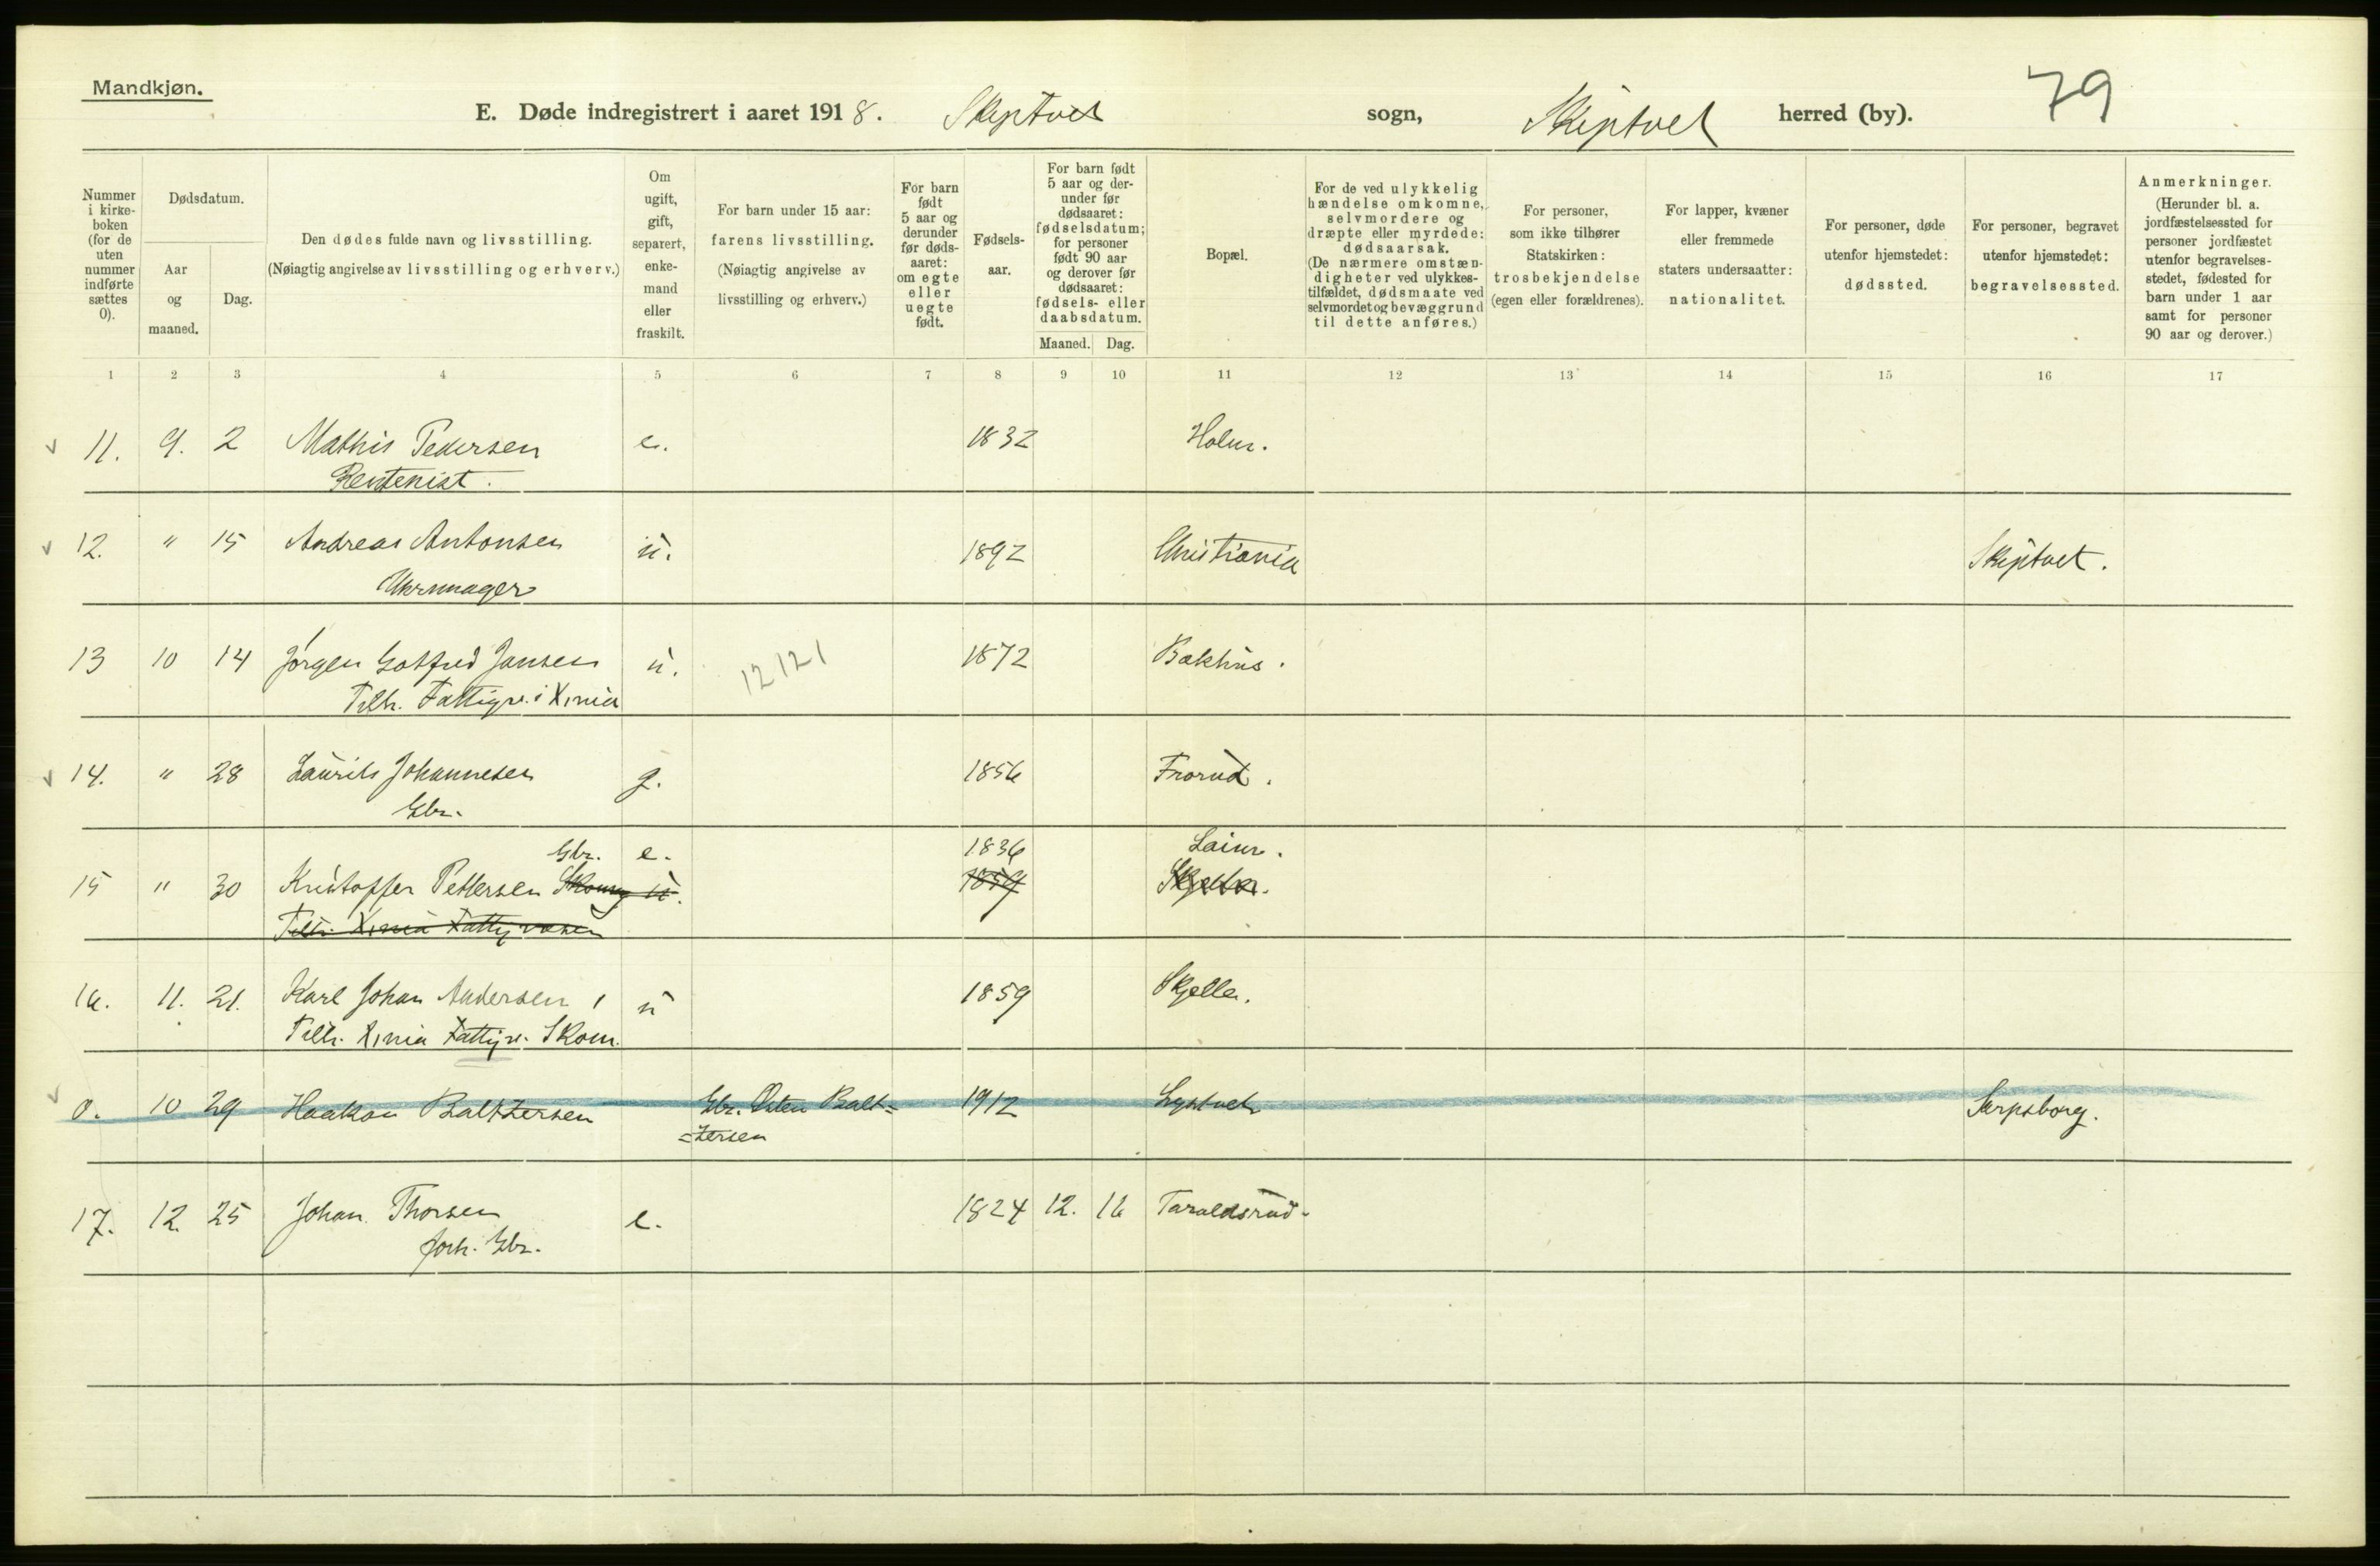 Mandkjøn.
E. Døde indregistrert i aaret 1918. Skiptvet sogn, Skiptvet herred (by). 79
Nummer i kirke-boken (for de uten nummer indførte sættes 0).
Dødsdatum.
Aar og maaned.
Dag.
Den dødes fulde navn og livsstilling.
(Nøiagtig angivelse av livsstilling og erhverv.)
Om ugift, gift, separert, enke-mand eller fraskilt.
For barn under 15 aar: farens livsstilling.
(Nøiagtig angivelse av livsstilling og erhverv.)
For barn født 5 aar og derunder før døds-aaret: om egte eller uegte født.
Fødsels-aar.
For barn født 5 aar og der-under før dødsaaret: fødselsdatum; for personer født 90 aar og derover før dødsaaret: fødsels- eller daabsdatum.
Maaned. Dag.
Bopæl.
For de ved ulykkelig hændelse omkomne, selvmordere og dræpte eller myrdede: dødsaarsak.
(De nærmere omstæn-digheter ved ulykkes-tilfældet, dødsmaate ved selvmordet og bevæggrund til dette anføres.)
For personer, som ikke tilhører Statskirken: trosbekjendelse (egen eller forældrenes).
For lapper, kvæner eller fremmede staters undersaatter: nationalitet.
For personer, døde utenfor hjemstedet: dødssted.
For personer, begravet utenfor hjemstedet: begravelsessted.
Anmerkninger.
(Herunder bl. a. jordfæstelsessted for personer jordfæstet utenfor begravelses-stedet, fødested for barn under 1 aar samt for personer 90 aar og derover.)
1 2 3 4 5 6 7 8 9 10 11 12 13 14 15 16 17
11. 9. 2 Mathis Pedersen e. 1832 Holm.
Rentenist.
12. " 15 Andreas Antonsen u. 1892 Christiania Skiptvet.
Uhrmager
13 10 14 Jørgen Gotfred Jansen u. 12121 1872 Bakhus.
Tilh. Fattigv. i X.nia
14. " 28 Laurits Johannesen g. 1856 Frorud.
Gbr.
Gbr. e. 1836 Laim.
15 " 30 Kristoffer Pettersen Skomg u. 1859 Skjelle.
Tilh. X.nia Fattigvæsen
16. 11. 21. Karl Johan Andersen, u 1859 Skjelle.
Tilh. X.nia Fattigv. Skom.
0. 10 29 Haakon Baltzersen Gbr. Osten Balt= 1912 Lystvet Sarpsborg.
=zersen
17. 12. 25 Johan Thorsen e. 1824 12. 16 Taraldsrud.
forh. Gbr.